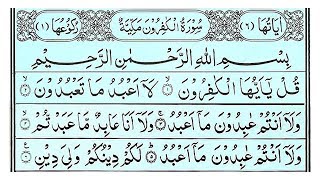 اٰيَاتُهَا (٦) سُوْرَةُ الْكٰفِرُوْنَ مَكِّيَّةٌ رُكُوْعُهَا (١)
بِسْمِ اللهِ الرَّحْمٰنِ الرَّحِيْمِ
قُلْ يٰۤاَيُّهَا الْكٰفِرُوْنَ ۙ﴿١﴾ لَاۤ اَعْبُدُ مَا تَعْبُدُوْنَ ۙ﴿٢﴾
وَلَاۤ اَنْتُمْ عٰبِدُوْنَ مَاۤ اَعْبُدُ ۚ﴿٣﴾ وَلَاۤ اَنَا عَابِدٌ مَّا عَبَدْتُّمْ ۙ﴿٤﴾
وَلَاۤ اَنْتُمْ عٰبِدُوْنَ مَاۤ اَعْبُدُ ؕ﴿٥﴾ لَكُمْ دِيْنُكُمْ وَلِيَ دِيْنِ ﴿٦﴾